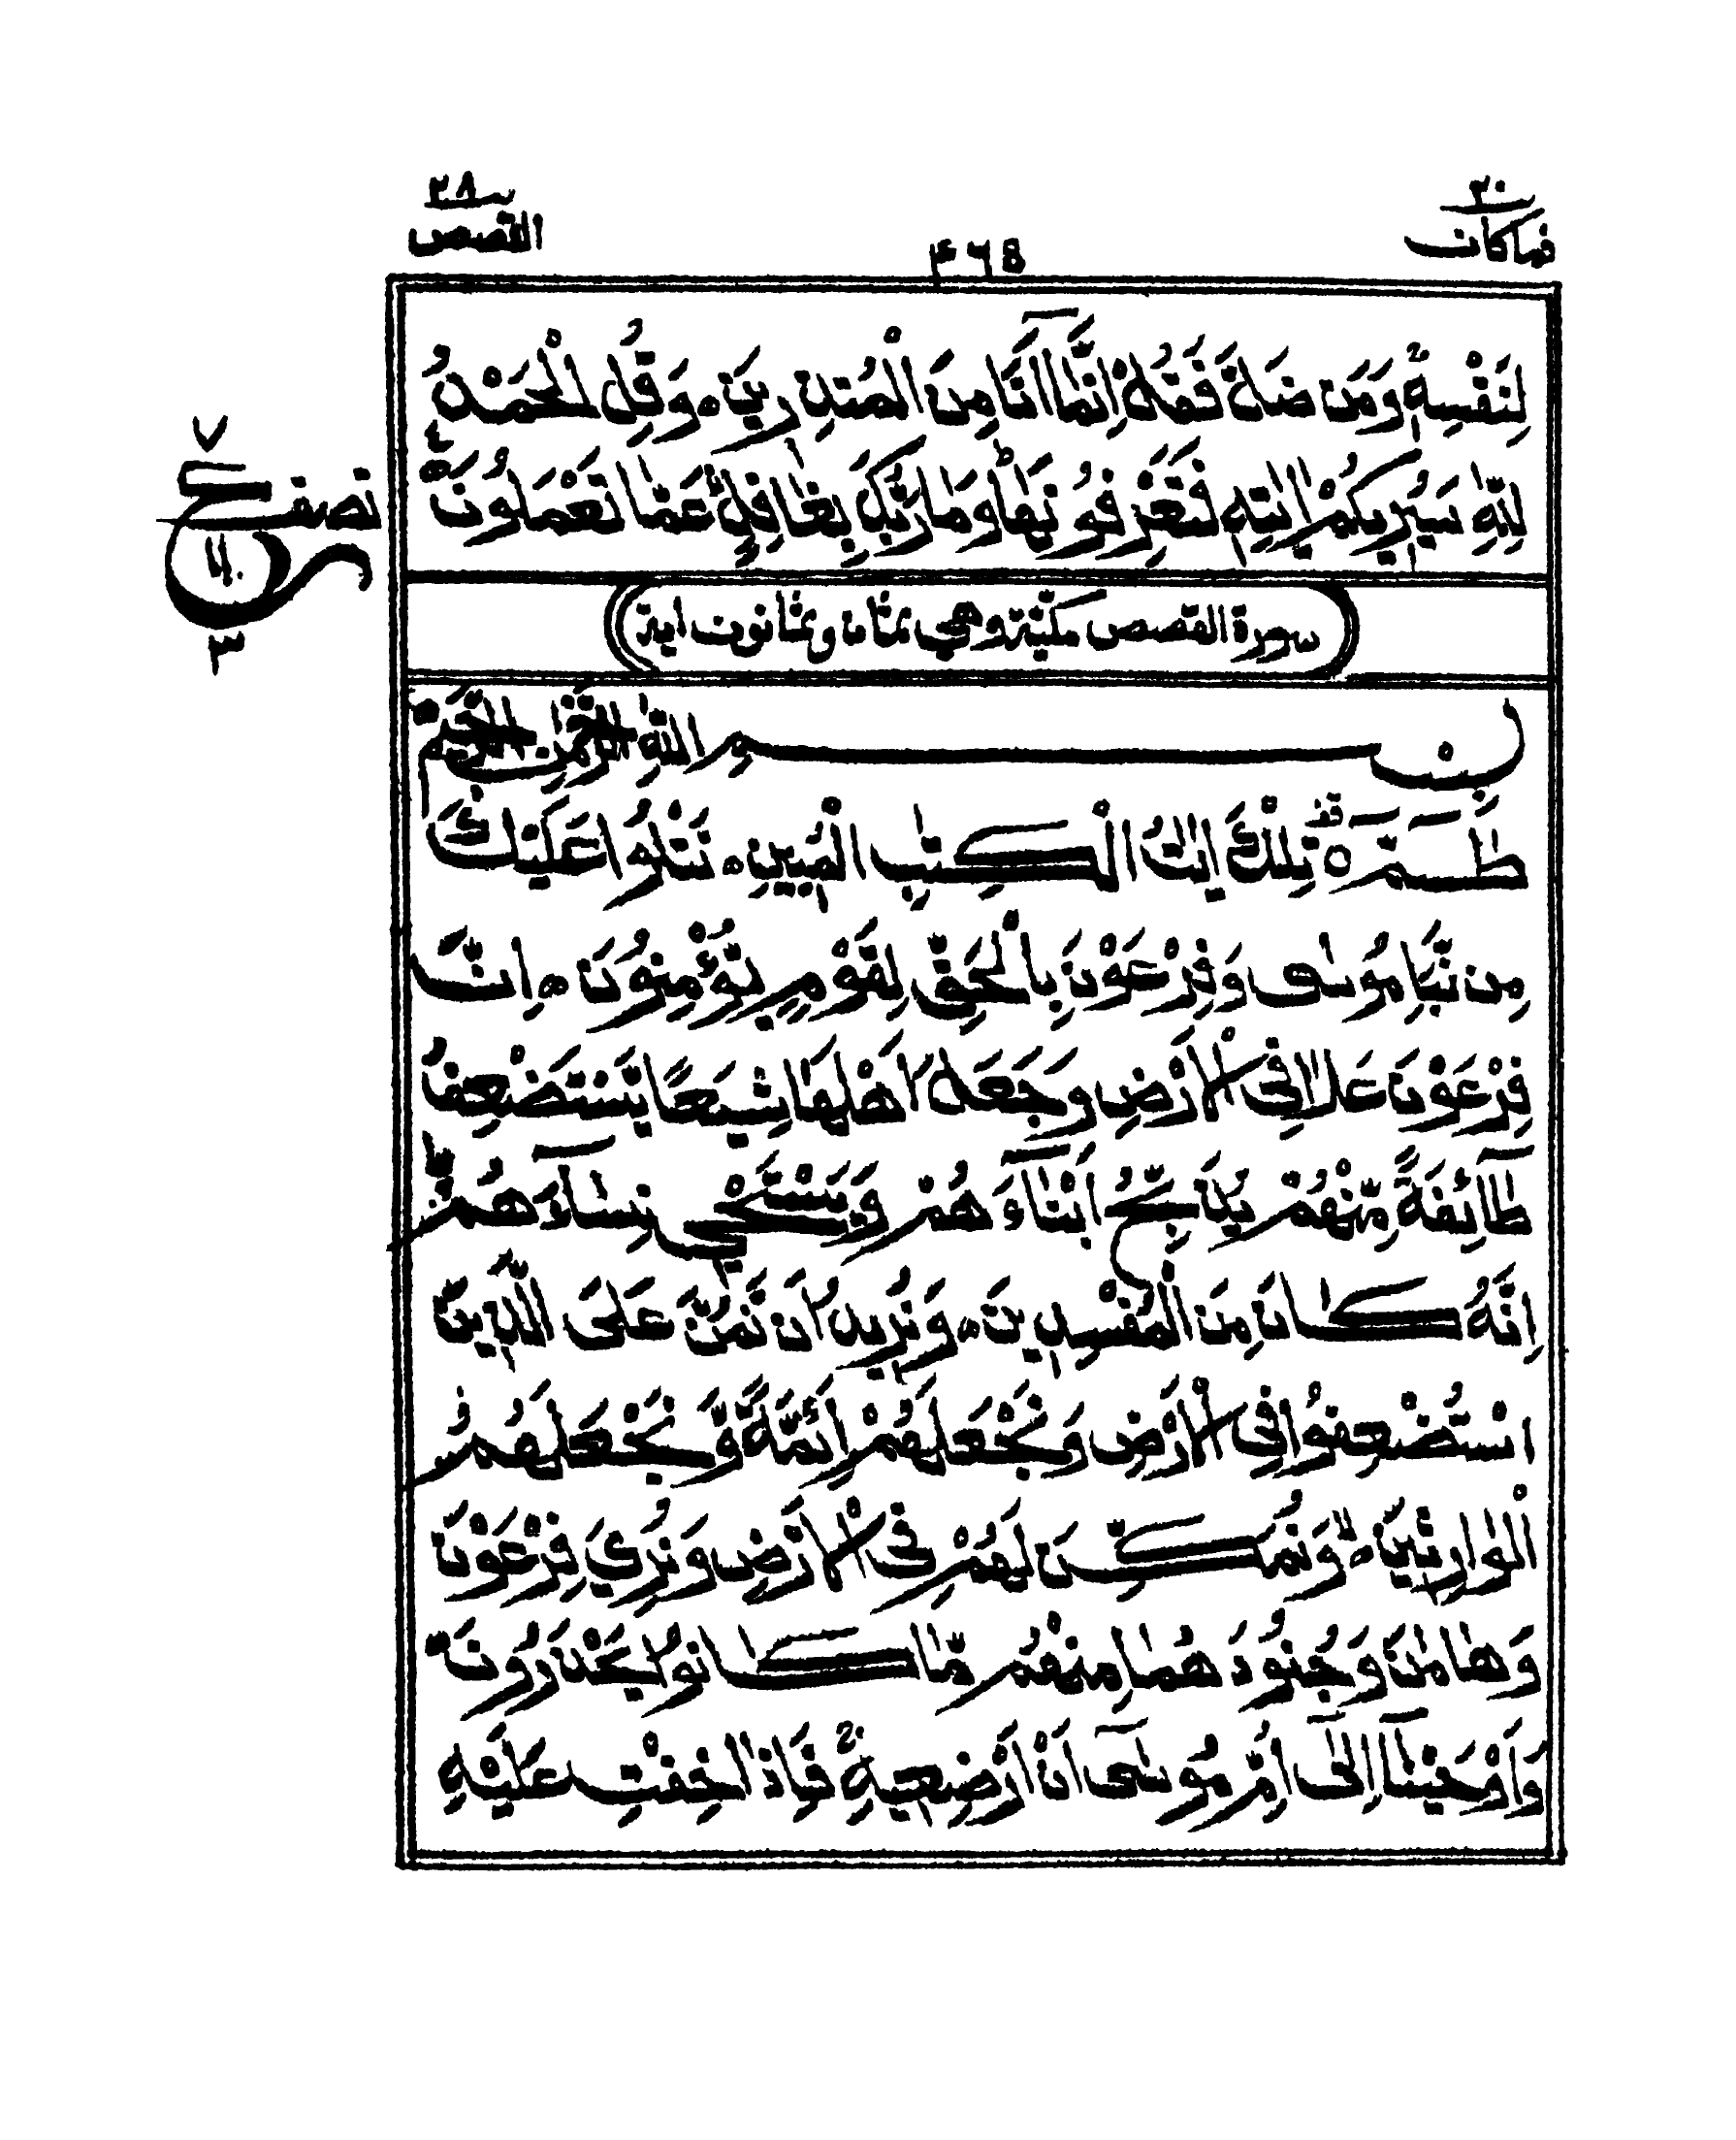 ٢٠
فماكان
٤٦٤
٢٨
القصص
لِنَفْسِهٖ وَمَن ضَلَّ فَقُلْ اِنَّمَآ اَنَا مِنَ الْمُنذِرِيْنَ ه وَقُلِ الْحَمْدُ
لِلّٰهِ سَيُرِيكُمْ اٰيٰتِهٖ فَتَعْرِفُونَهَا ط وَمَا رَبُّكَ بِغَافِلٍ عَمَّا تَعْمَلُونَ
نصف
ع
٧
١١
٣
سورة القصص مكيّة وهي ثمان وثمانون اية
بِسْمِ اللّٰهِ الرَّحْمٰنِ الرَّحِيْمِ
طٰسٓمّٓ ه تِلْكَ اٰيٰتُ الْكِتٰبِ الْمُبِيْنِ ه نَتْلُوْا عَلَيْكَ
مِن نَّبَاِ مُوسٰى وَفِرْعَوْنَ بِالْحَقِّ لِقَوْمٍ يُّؤْمِنُوْنَ ه اِنَّ
فِرْعَوْنَ عَلَا فِى الْاَرْضِ وَجَعَلَ اَهْلَهَا شِيَعًا يَّسْتَضْعِفُ
طَآئِفَةً مِّنْهُمْ يُذَبِّحُ اَبْنَآءَهُمْ وَيَسْتَحْيٖ نِسَآءَهُمْ ط
اِنَّهٗ كَانَ مِنَ الْمُفْسِدِيْنَ ه وَنُرِيْدُ اَنْ نَّمُنَّ عَلَى الَّذِيْنَ
اسْتُضْعِفُوْا فِى الْاَرْضِ وَنَجْعَلَهُمْ اَئِمَّةً وَّنَجْعَلَهُمُ
الْوٰرِثِيْنَ ه وَنُمَكِّنَ لَهُمْ فِى الْاَرْضِ وَنُرِيَ فِرْعَوْنَ
وَهَامٰنَ وَجُنُوْدَهُمَا مِنْهُم مَّا كَانُوْا يَحْذَرُوْنَ
وَاَوْحَيْنَآ اِلٰٓى اُمِّ مُوسٰٓى اَنْ اَرْضِعِيْهِ فَاِذَا خِفْتِ عَلَيْهِ